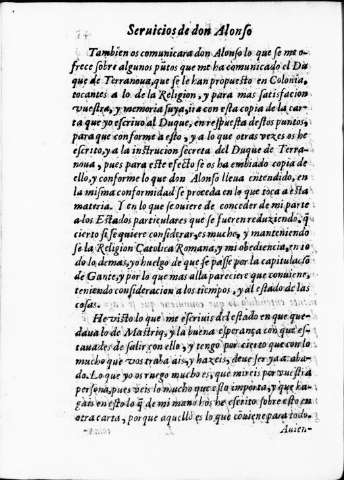 Seruicios de don Alonso
Tambien os comunicara don Alonso lo que se me o-
frece sobre algunos pũtos que me ha comunicado el Du
que de Terranoua, que se le han propuesto en Colonia,
tocantes a lo de la Religion, y para mas satisfacion
vuestra, y memoria suya, ira con esta copia de la car-
ta que yo escriuo al Duque, en respuesta destos puntos,
para que conforme a esto, y a lo que otras vezes os he
escrito, y a la instrucion secreta del Duque de Terra-
noua, pues para este efecto se os ha embiado copia de
ello, y conforme lo que don Alonso lleua entendido, en
la misma conformidad se proceda en lo que toca a esta
materia. Y en lo que se ouiere de conceder de mi parte
a los Estados particulares que se fueren reduziendo, q̃
cierto si se quiere considerar, es mucho, y manteniendo
se la Religion Catolica Romana, y mi obediencia, en to
do lo demas, yo huelgo de que se passe por la capitulaciõ
de Gante, y por lo que mas alla pareciere que conuiene,
teniendo consideracion a los tiempos, y al estado de las
cosas.
He visto lo que me escriuis del estado en que que-
daua lo de Mastriq, y la buena esperança con que es-
tauades de salir con ello, y tengo por cierto que con lo
mucho que vos trabajais, y hazeis, deue ser ya acaba-
do. Lo que yo os ruego mucho es, que mireis por vuestra
persona, pues veis lo mucho que esto importa, y que ha-
gais en esto lo q̃ de mi mano hos he escrito sobre esto en
otra carta, porque aquello es lo que cõuiene para todo.
Auien-